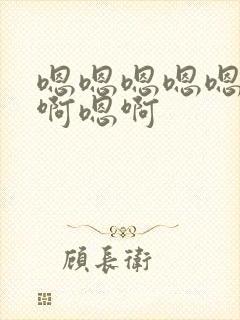 嗯嗯嗯嗯嗯
啊嗯啊
顾長衛